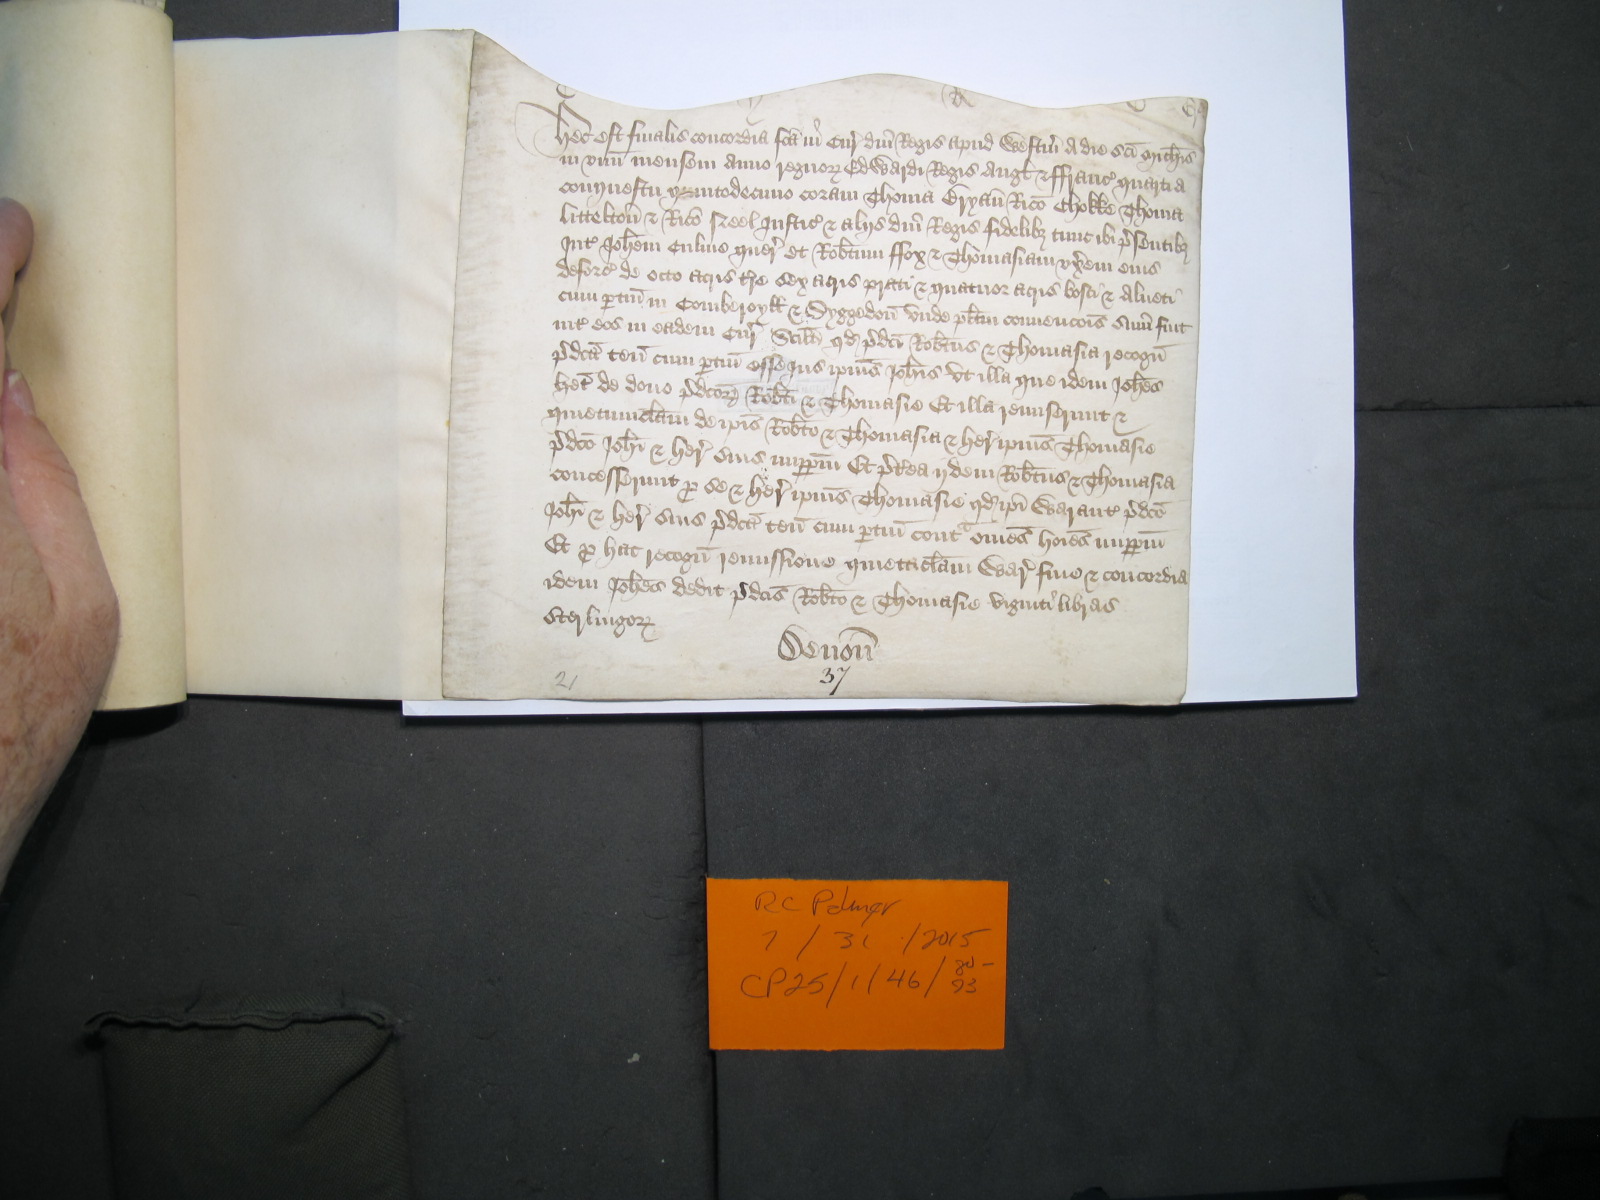 Hec est finalis concordia fca in Cur dni Regis apud Westm A die Sci Michis
in unu mensem anno regnor Edwardi Regis Angl & ffranc quarti a
conquestu quintodecimo coram Thoma Bryan Rico Chokke Thoma
Littelton & Rico Neel Justic & aliis dni Regis fidelibz tunc ibi psentibz
Int Johem quer et Robtum ffox & Thomasiam uxem eius
deforc de octo acris tre sex acris prati & quatuor acris bosci & alneti
cum ptin in Comberoyll & Dyggedon unde plitm convencois sum fuit
int eos in eadem Cur Scilt qd pdci Robtus & Thomasia recogn
pdca ten cum ptin esse jus ipius Johis ut illa que idem Johes
het de dono pdcor Robti & Thomasie Et illa remiserunt &
quietumclam de ipis Robto & Thomasia & her ipius Thomasie
pdco Johi & her suis imppm Et pterea iidem Robtus & Thomasia
concesserunt p se & her ipius Thomasie qd ipi Warant pdco
Johi & her suis pdca ten cum ptin cont omes hoies imppm
Et p hac recogn remissione quietaclam War fine & concordia
idem Johes dedit pdcis Robto & Thomasie viginti libras
Sterlingor
Devon
37
21
RC Palmer
7 / 31 / 2015
CP25/1/46/80-
93